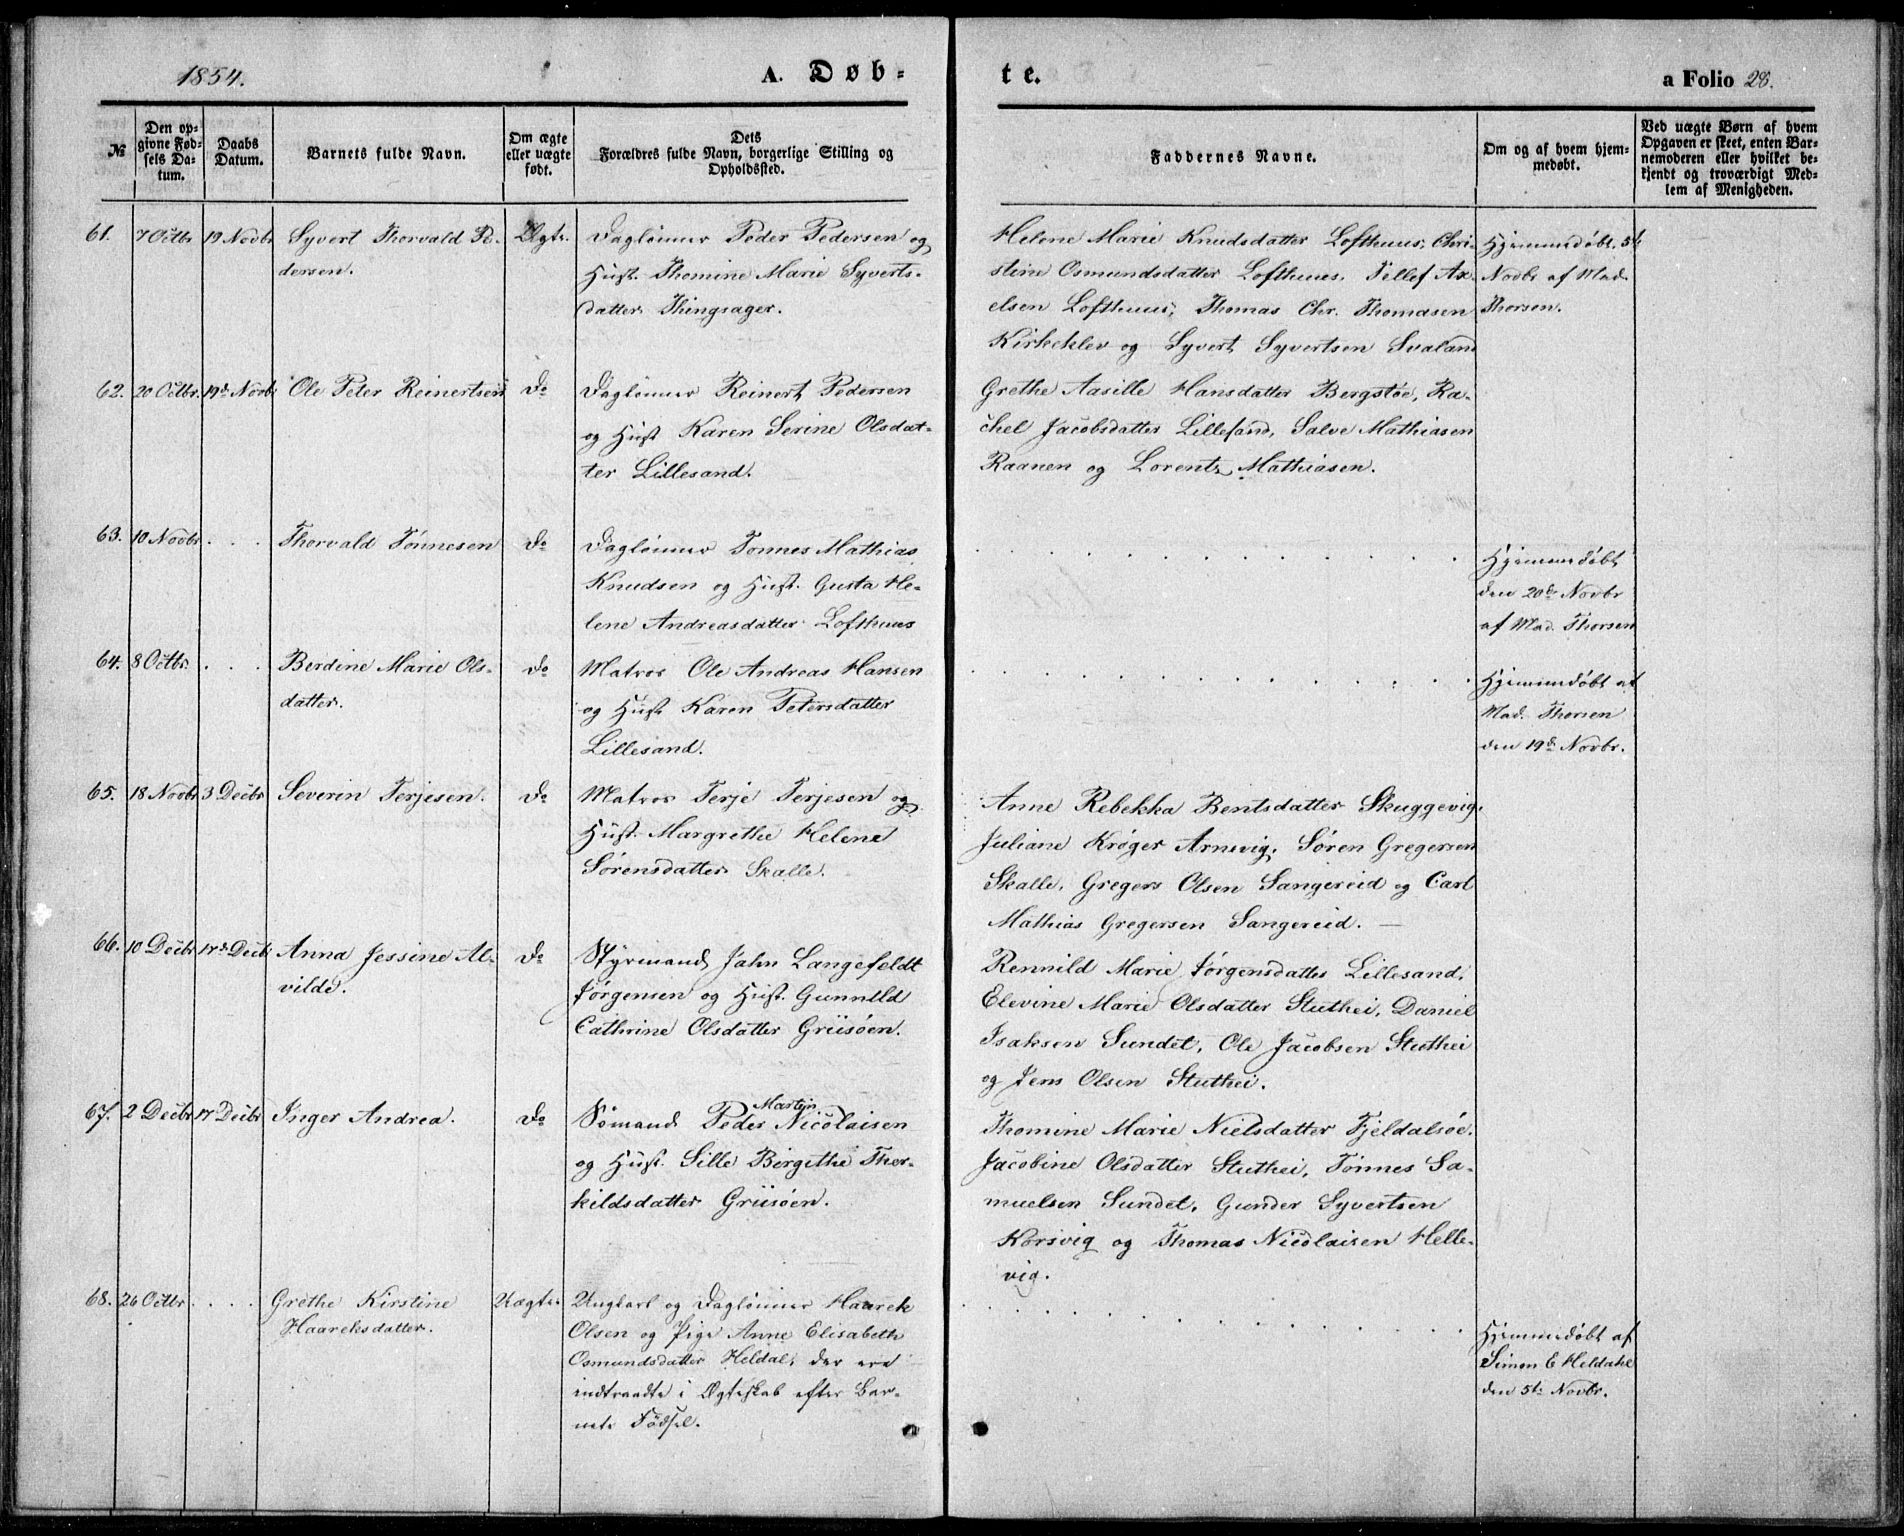 1854.
A. Døb-
te.
a Folio 28.
№
Den op-
givne Fød-
sels Da-
tum.
Daabs
Datum.
Barnets fulde Navn.
Om ægte
eller uægte
født.
Dets
Forældres fulde Navn, borgerlige Stilling og
Opholdssted.
Faddernes Navne.
Om og af hvem hjem-
medøbt.
Ved uægte Børn af hvem
Opgaven er skeet, enten Bar-
nemoderen eller hvilket be-
kjendt og troværdigt Med-
lem af Menigheden.
61. 7 Octbr 19 Novbr Syvert Thorvald Pe-
dersen.
Ægte.
Daglønner Peder Pedersen og
Hust. Thomine Marie Syverts-
datter Thingsager.
Helene Marie Knudsdatter Lofthuus, Chri-
stine Osmundsdatter Lofthuus, Tellef Ax-
elsen Lofthuus, Thomas Chr. Thomasen
Kirkeklev og Syvert Syvertsen Svaland
Hjemmedøbt 5te
Novbr af Mad.
Thorsen.
62. 20 Octbr. 19de Novbr Ole Peter Reinertsen Do
Daglønner Reinert Pedersen
og Hust Karen Serine Olsdat-
ter Lillesand.
Grethe Aasille Hansdatter Bergstøe, Ra-
chel Jacobsdatter Lillesand, Salve Mathiasen
Raanen og Lorentz Mathiasen.
63. 10 Novbr . . . Thorvald Tönnesen Do
Daglønner Tonnes Mathias
Knudsen og Hust. Gusta He-
lene Andreasdatter Lofthuus
Hjemmedøbt
den 20de Novbr
af Mad. Thorsen
64. 8 Octbr. . . . Berdine Marie Ols-
datter.
Do
Matros Ole Andreas Hansen
og Hust Karen Petersdatter
Lillesand.
Hjemmedøbt af
Mad. Thorsen
den 19de Novbr.
65. 18 Novbr 3 Decbr Severin Terjesen. Do
Matros Terje Terjesen og
Hust. Margrethe Helene
Sørensdatter Skalle.
Anne Rebekka Bentsdatter Skuggevig,
Juliane Krøger Arnsvig, Søren Gregersen
Skalle, Gregers Olsen Sangereid og Carl
Mathias Gregersen Sangereid. —
66. 10 Decbr 17de Decbr Anna Jessine Al-
vilde.
Do
Styrmand Jahn Langefeldt
Jørgensen og Hust. Gunnild
Cathrine Olsdatter Griisöen.
Rennild Marie Jørgensdatter Lillesand,
Elevine Marie Olsdatter Stuthei, Daniel
Isaksen Sundet, Ole Jacobsen Stuthei
og Jens Olsen Stuthei.
67. 2 Decbr 17 Decbr Inger Andrea. Do
Martin
Sømand Peder Nicolaisen
og Hust. Sille Birgithe Ther-
kildsdatter Griisöen.
Thomine Marie Nielsdatter Fjeldalsøe,
Jacobine Olsdatter Stuthei, Tönnes Sa-
muelsen Sundet, Gunder Syvertsen
Korsvig og Thomas Nicolaisen Helle-
vig.
68. 26 Octbr . . . . Grethe Kirstine
Haareksdatter.
Uægte.
Ungkarl og Daglønner Haarek
Olsen og Pige Anne Elisabeth
Osmundsdatter Heldal, der ere
indtraadte i Ægteskab efter Bar-
nets Födsel.
Hjemmedøbt af
Simon E Heldahl
den 5te Novbr.